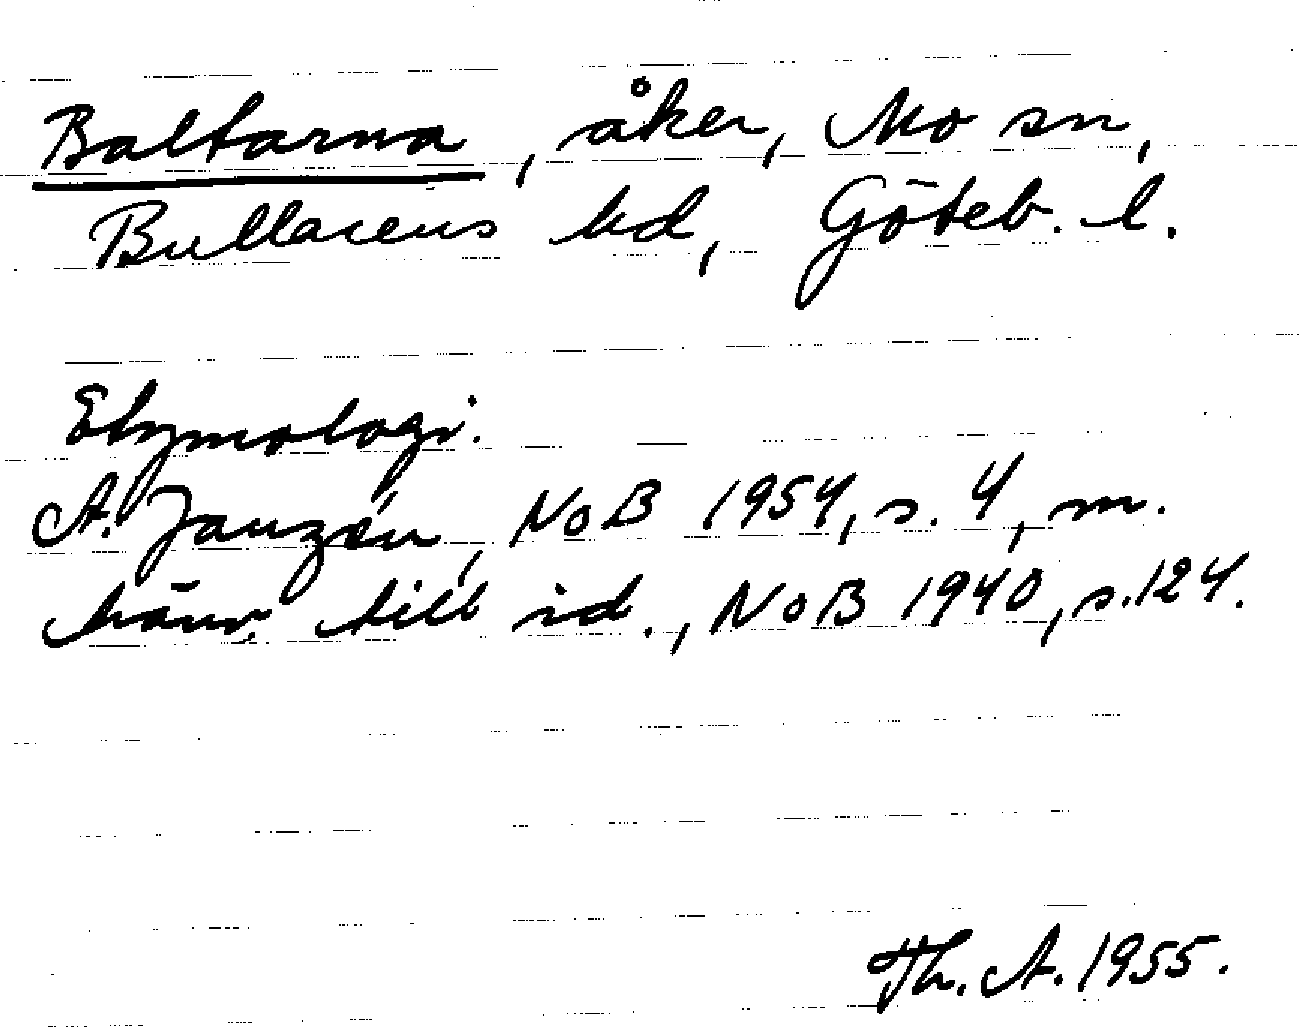 Baltarna, åker, Mo sn,
Bullarens hd, Göteb. l.
Etymologi.
A. Janzén, NoB 1954, s. 4, m.
hänv. till id., NoB 1940, s. 124.
Th. A. 1955.